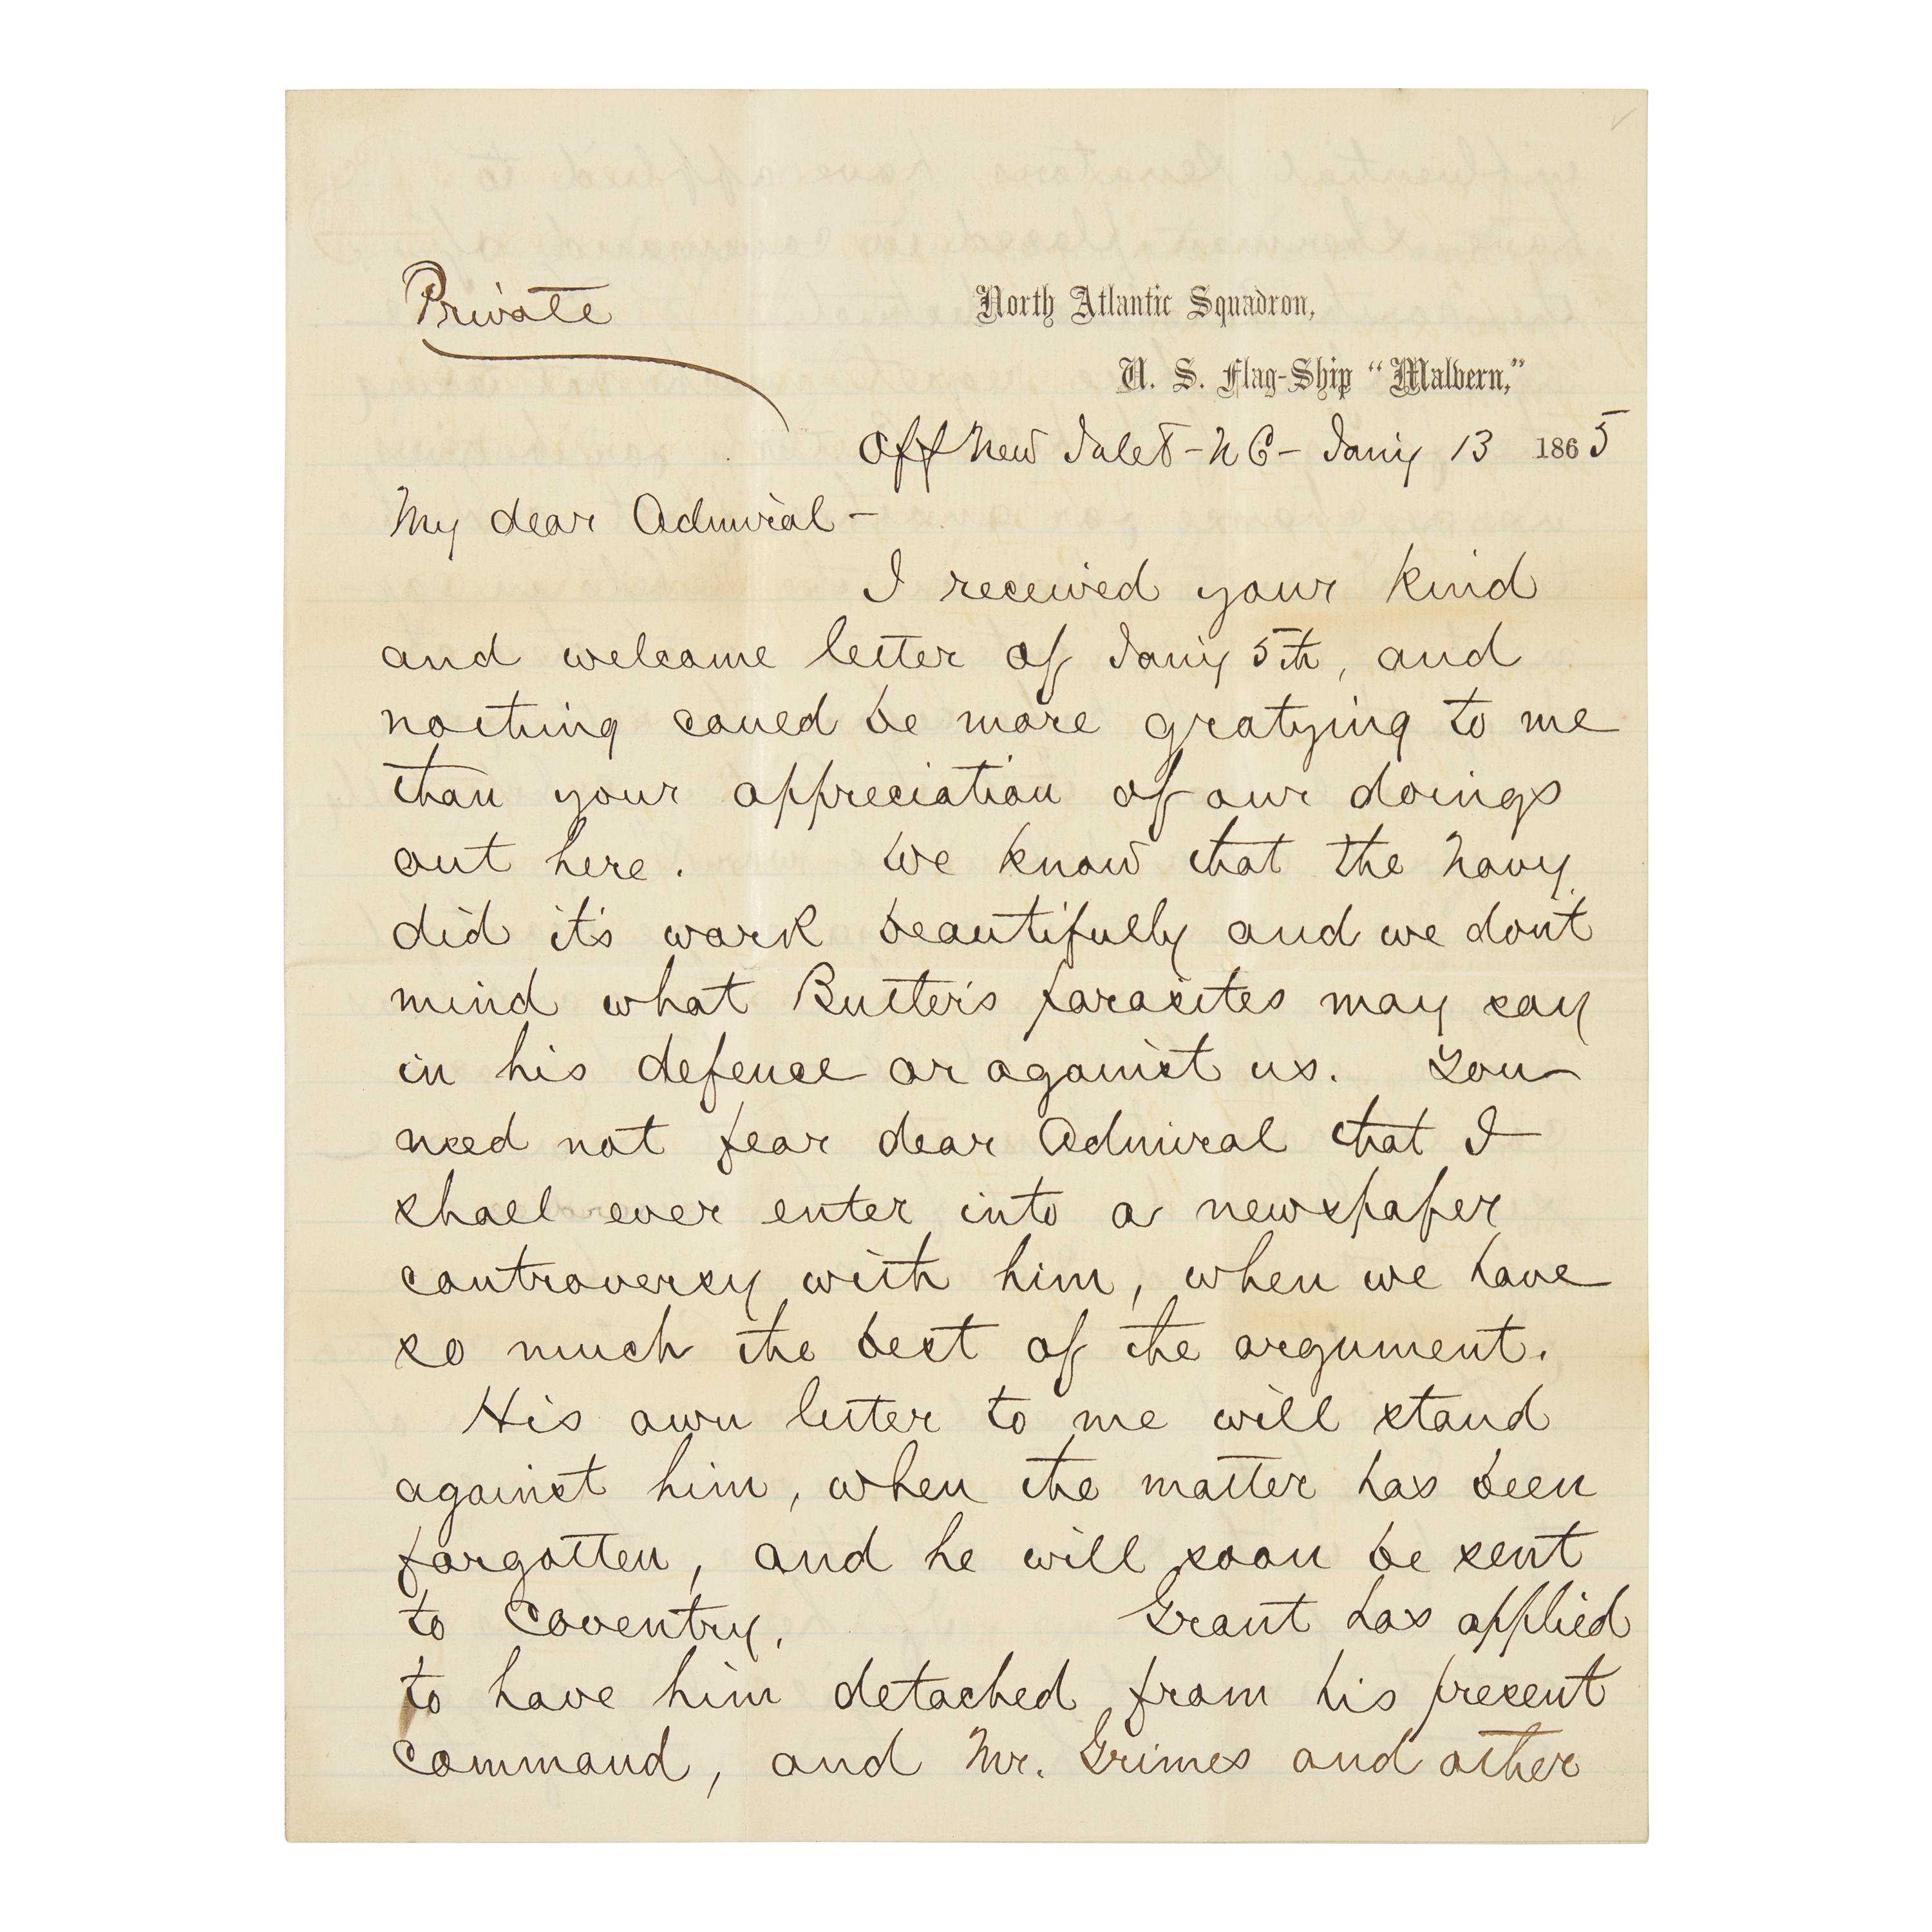 Private
North Atlantic Squadron,
U. S. Flag-Ship "Malvern,"
Off New Inlet - N C - Jany 13 1865
My dear Admiral -
I received your kind
and welcome letter of Jany 5th, and
nothing could be more gratying to me
than your appreciation of our doings
out here. We know that the Navy
did it's work beautifully and we don't
mind what Butler's parasites may say
in his defence or against us. You
need not fear dear Admiral that I
shall ever enter into a newspaper
controversy with him, when we have
so much the best of the argument.
His own letter to me will stand
against him, when the matter has been
forgotten, and he will soon be sent
to Coventry. Grant has applied
to have him detached from his present
command, and Mr. Grimes and other